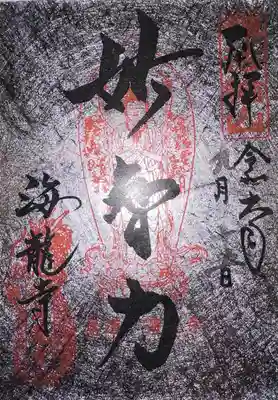 奉拝
令和六年
九月 日
妙智力
海龍寺